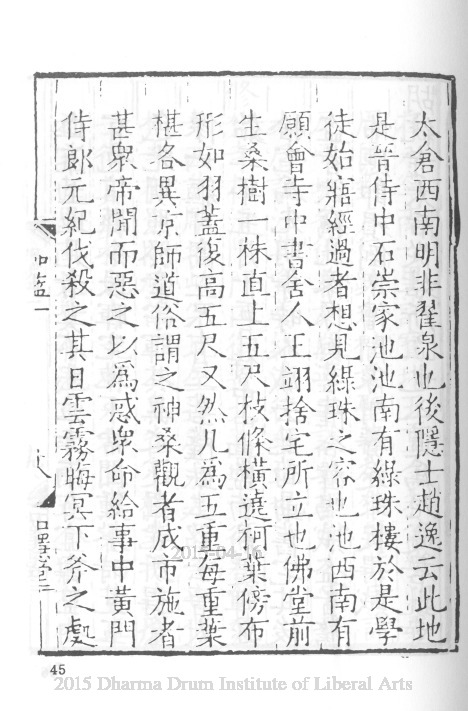 太倉西南明非翟泉也後隱士趙逸云此地
是晉侍中石崇家池池南有綠珠樓於是學
徒始寤經過者想見綠珠之容也池西南有
願會寺中書舍人王翊捨宅所立也佛堂前
生桑樹一株直上五尺枝條橫遶柯葉傍布
形如羽蓋復高五尺又然凡爲五重每重葉
椹各異京師道俗謂之神桑觀者成市施者
甚衆帝聞而惡之以爲惑衆命給事中黃門
侍郎元紀伐殺之其日雲霧晦冥下斧之處
45
2015-04-16
2015 Dharma Drum Institute of Liberal Arts